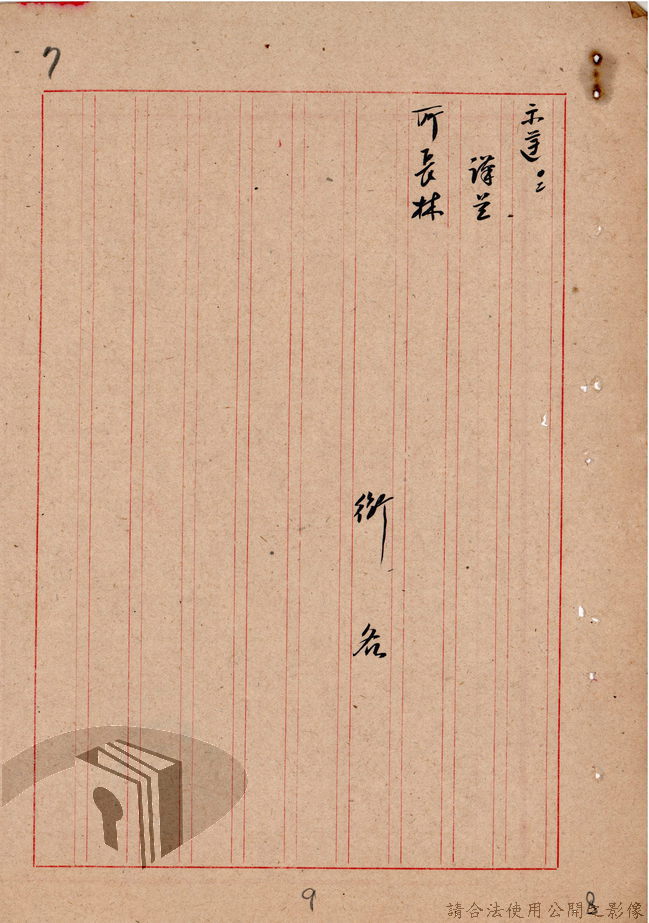 7
示遵。
謹呈
所長林
銜名
9
8
請合法使用公開之影像